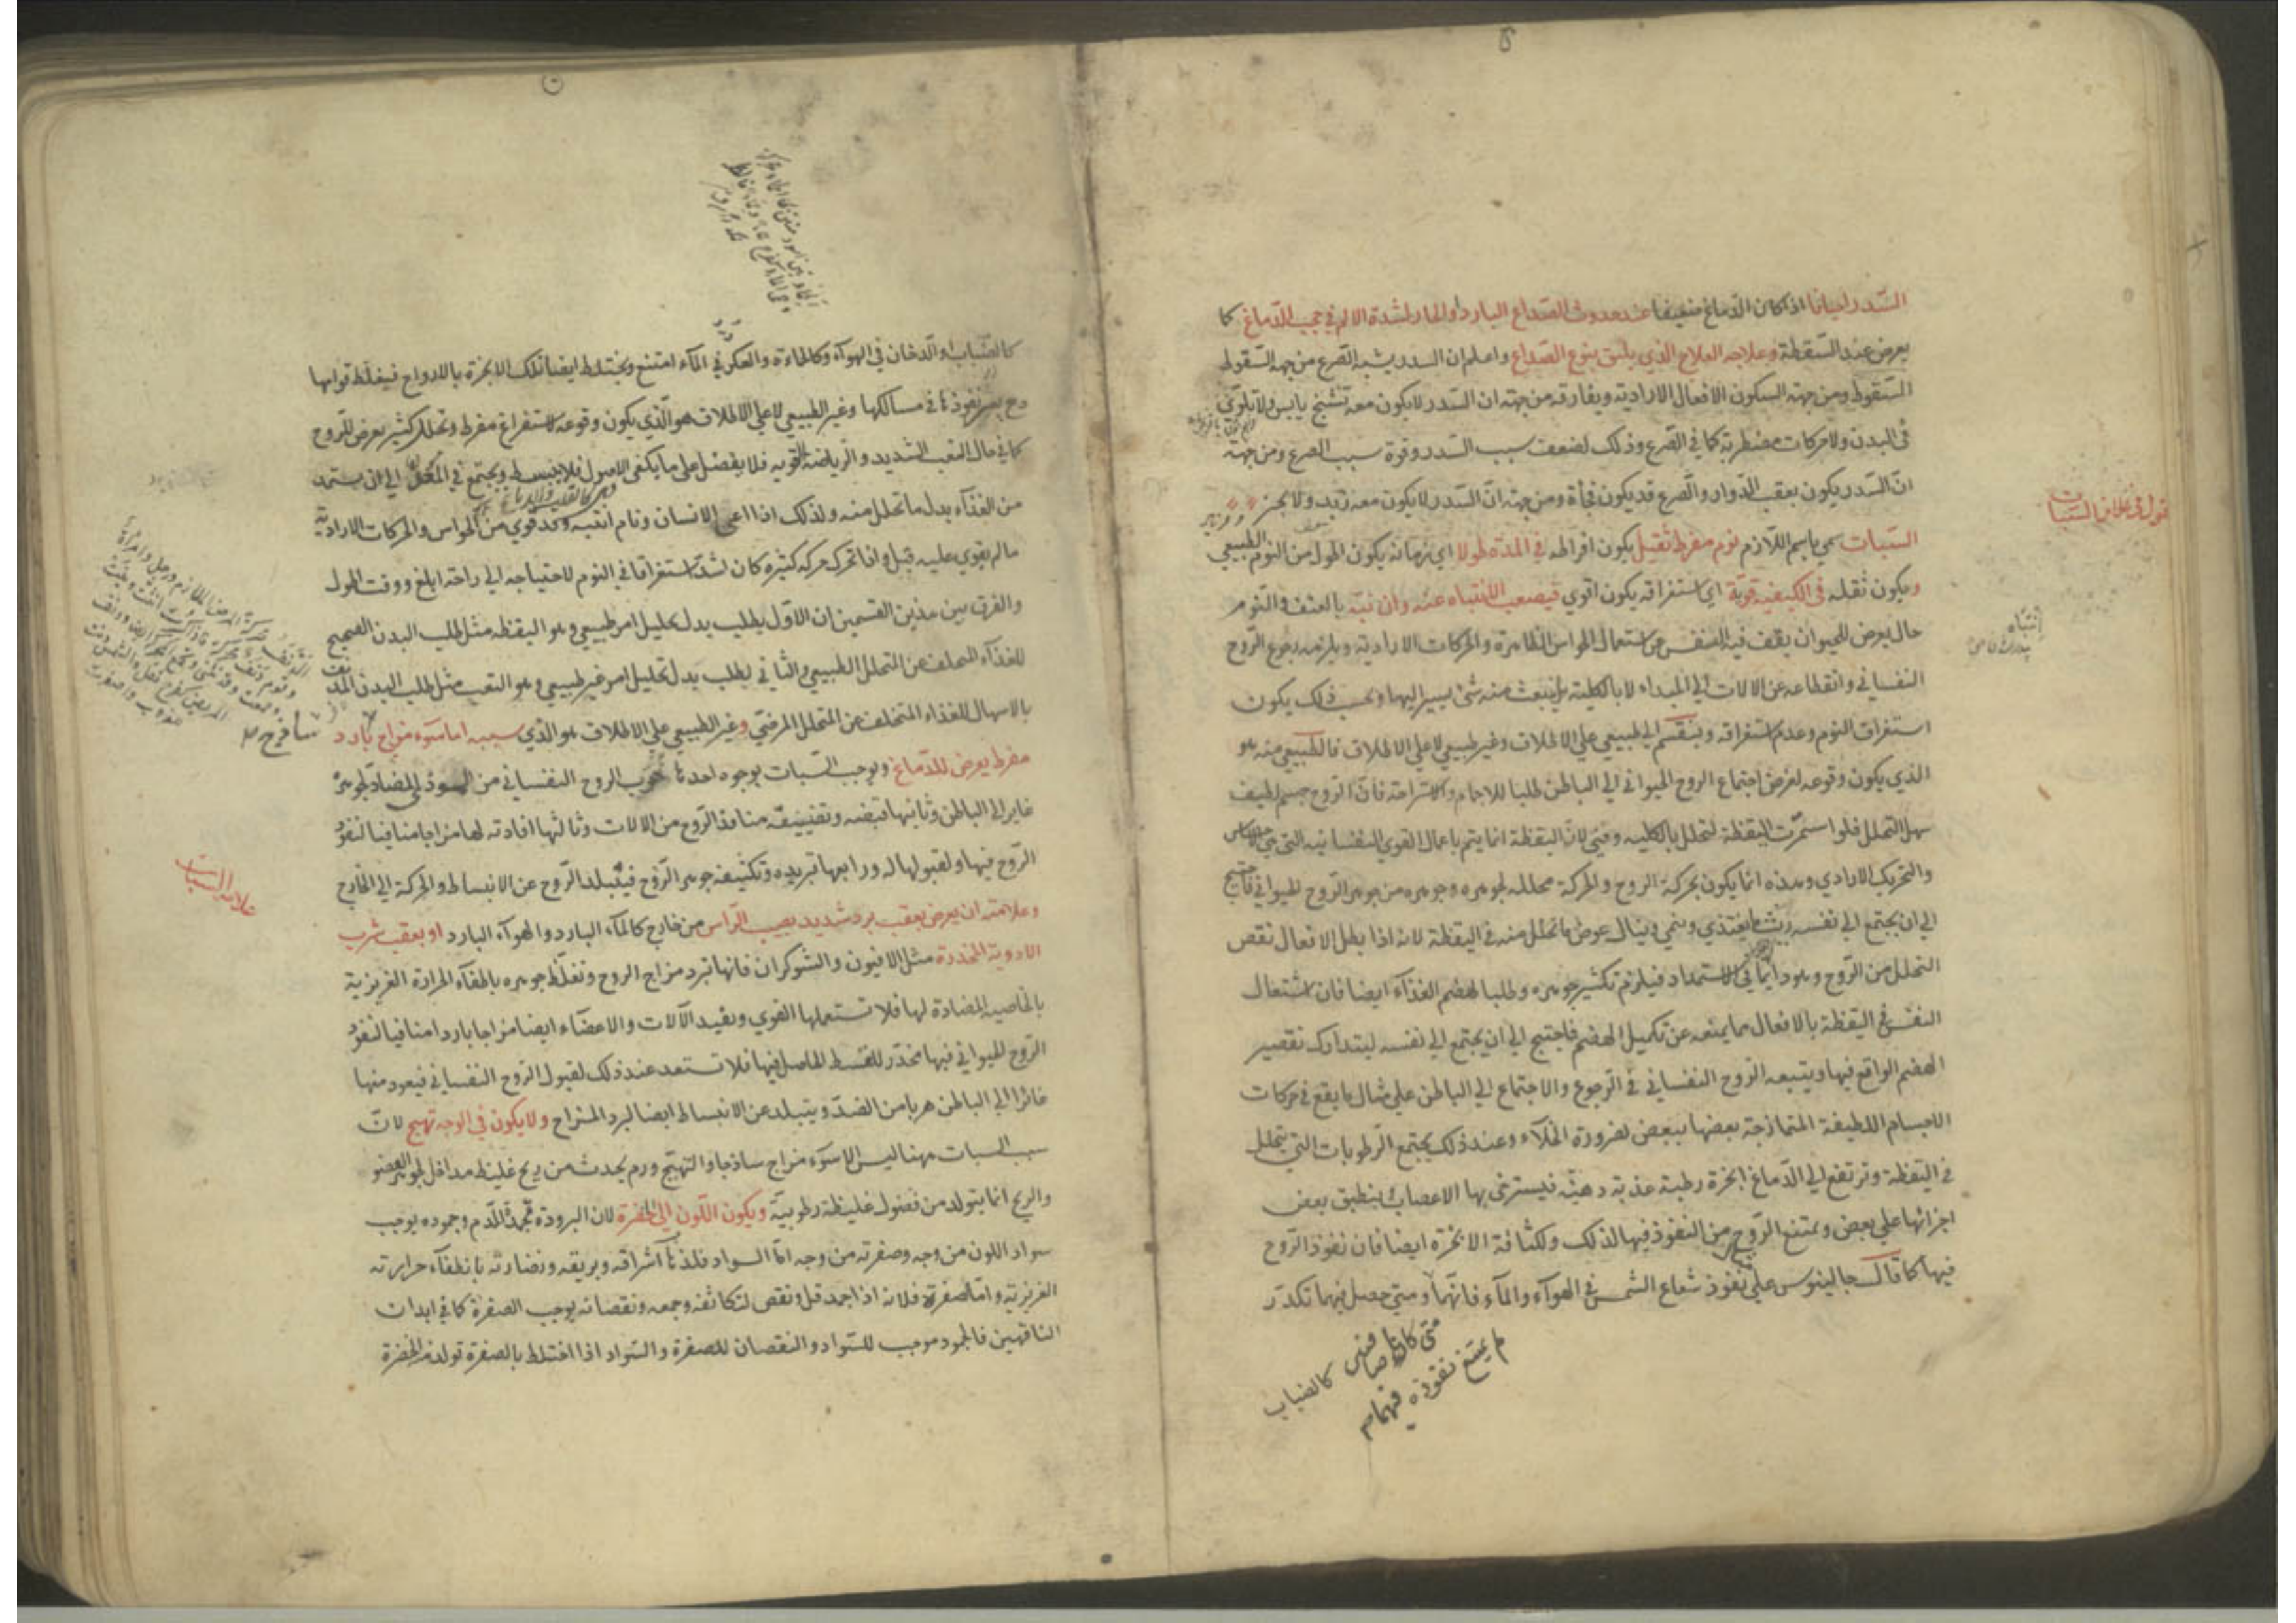 السّدر احيانا اذا كان الدّماغ ضعيفا عند حدوث الصّداع البارد او الحار لشدة الالم في حجب الدّماغ كما
يعرض عند السّقطة وعلاجه العلاج الذي يليق بنوع الصّداع واعلم ان السدر يشبه الصّرع من جهة السّقوط
السّقوط ومن جهة السكون الافعال الارادية ويفارقه من جهة ان السّدر لا يكون معه تشنّج يابس ولا تلوّي
في البدن ولا حركات مضطربة كما في الصّرع وذلك لضعف سبب السّدر وقوة سبب الصرع ومن جهة
انّ السّدر يكون بعقب الدّوار والصّرع قد يكون فجأة ومن جهة انّ السّدر لا يكون معه زبد ولا
قول في علاج السّبات
السّبات سمي باسم اللّازم نوم مفرط ثقيل يكون افراطه في المدّة طولا اي زمانه يكون اطول من النّوم الطبيعي
ويكون ثقله في الكيفية قوية اي استغراقه يكون اقوي فيصعب الانتباه عنه وان نبّه بالعنف والنّوم
إنتباه
حال يعرض للحيوان يقف فيه النفس عن استعمال الحواس الظاهرة والحركات الارادية ويلزمه رجوع الرّوح
النفساني وانقطاعه عن الالات الي المبداء لا بالكلية بل ينبعث منه شئ يسير اليها وبحسب ذلك يكون
استغراق النّوم وعدم استغراقه وينقسم الي طبيعي علي الاطلاق وغير طبيعي لا علي الاطلاق فالطبيعي منه هو
الذي يكون وقوعه لغرض اجتماع الروح الحيواني الي الباطن طلبا للاجمام والاستراحة فانّ الرّوح جسم لطيف
سهل التحلل فلو استمرّت اليقظة لتحلل بالكلية وفني لانّ اليقظة انما يتم باعمال القوي النفسانيه التي هي الاحساس
والتحريك الارادي وهذه انما يكون بحركة الروح والحركة محللة لجوهره وجوهره من جوهر الرّوح الحيواني فاحتيج
الي ان يجتمع الي نفسه ريثما يغتذي وينمي وينال عوض ما تحلل منه في اليقظة لانه اذا بطل الافعال نقص
التحلل من الرّوح وهو دايما في الاستمداد فيلزم تكثير جوهره وطلبا لهضم الغذآء ايضا فان اشتغال
النفس في اليقظة بالافعال مما يمنعه عن تكميل الهضم فاحتيج الي ان يجتمع الي نفسه ليتدارك تقصير
الهضم الواقع فيها ويتبعه الروح النفساني في الرجوع والاجتماع الي الباطن علي مثال ما يقع في حركات
الاجسام اللطيفة المتمازجة بعضها ببعض لضرورة الخلآء وعند ذلك يجتمع الرّطوبات التي يتحلل
في اليقظة وترتفع الي الدّماغ ابخرة رطبة عذبة دهنية فيسترخي بها الاعصاب ينطبق بعض
اجزائها علي بعض ويمتنع الرّوح من النفوذ فيها لذلك ولكثافة الابخرة ايضا فان نفوذ الرّوح
فيها كما قال جالينوس علي نفوذ شعاع الشمس في الهوآء والمآء فانهما ومتي حصل فيهما تكدّر
متي كانا صافيين
لم يمتنع نفوذه فيهما
كالضباب
كالضّباب او الدّخان في الهوآء وكالحمأة والعكر في المآء امتنع ويختلط ايضا تلك الابخرة بالارواح فيغلّظ قوامها
وح يعسر نفوذها في مسالكها وغير الطبيعي لا علي الاطلاق هو الّذي يكون وقوعه لاستفراغ مفرط وتحلل كثير يعرض للرّوح
كما في حال التعب الشديد والرّياضة القويه فلا يفضل علي ما يكفي الاصول فلا ينبسط ويجتمع في المحل الي ان يستمد
من الغذآء بدل ما تحلل منه ولذلك اذا اعيي الانسان ونام انتبه وقد قوي من الحواس والحركات الارادية
ما لم يقوي عليه قبل واذا تحرك حركة كثيره كان اشدّ استغراقا في النوم لاحتياجه الي راحة ابلغ ووقت اطول
والفرق بين هذين القسمين ان الاوّل يطلب بدل تحليل امر طبيعي وهو اليقظه مثل طلب البدن الصحيح
للغذآء المتخلف عن التحلل الطبيعي والثاني يطلب بدل تحليل امر غير طبيعي وهو التعب مثل طلب البدن المدنف
بالاسهال للغذاء المتخلف عن المتحلل المرضيّ وغير الطبيعي علي الاطلاق هو الّذي سببه اما سوء مزاج بارد
ساذج
مفرط يعرض للدّماغ ويوجب السّبات بوجوه احدها هرب الروح النفساني من النفوذ الي المضادّ لجوهره
غايرا الي الباطن وثانيها قبضه وتضييقه منافذ الرّوح من الالات وثالثها افادته لها مزاجا منافيا لنفوذ
الرّوح فيها ولقبولها له ورابعها تبريده وتكثيفه جوهر الرّوح فيتبلد الرّوح عن الانبساط والحركة الي الخارج
علامة السّبات
وعلامته ان يعرض بعقب برد شديد يصيب الرّاس من خارج كالمآء البارد والهوآء البارد او بعقب شرب
الادوية المخدّرة مثل الافيون والشوكران فانها تبرد مزاج الروح وتغلّظ جوهره باطفآء الحرارة الغريزية
بالخاصية المضادة لها فلا تستعملها القوي وبقيد الآلات والاعضآء ايضا مزاجا باردا منافيا لنفوذ
الرّوح الحيواني فيها مخدّر للقسط الحاصل فيها فلا تستعد عند ذلك لقبول الروح النفساني فيعود منها
غائرا الي الباطن هربا من الضدّ ويتبلد عن الانبساط ايضا لبرد المزاج ولا يكون في الوجه تهيج لانّ
سبب السبات ههنا ليس الا سوء مزاج ساذجا والتهيّج ورم يحدث من ريح غليظ مداخل لجوهر العضو
والريح انما يتولد من فضول غليظة رطوبيّة ويكون اللّون الي الخضرة لان البرودة تجمّد الدّم وجموده يوجب
سواد اللون من وجه وصفرته من وجه امّا السواد فلذهاب اشراقه وبريقه ونضارته بانطفآء حرارته
الغريزية وامّا صفرته فلانه اذا جمد قل ونقص لتكاثفه وجمعه ونقصانه يوجب الصفرة كما في ابدان
الناقهين فالجمود موجب للسّواد والنقصان للصفرة والسّواد اذا اختلط بالصفرة تولد منه الخضرة